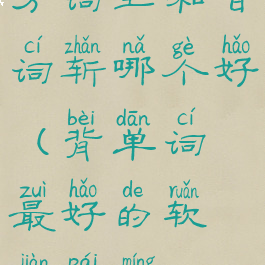 cí zhǎn nǎ gè hǎo
词斩哪个好
bèi dān cí
(背单词
zuì hǎo de ruǎn
最好的软
jiàn pái míng